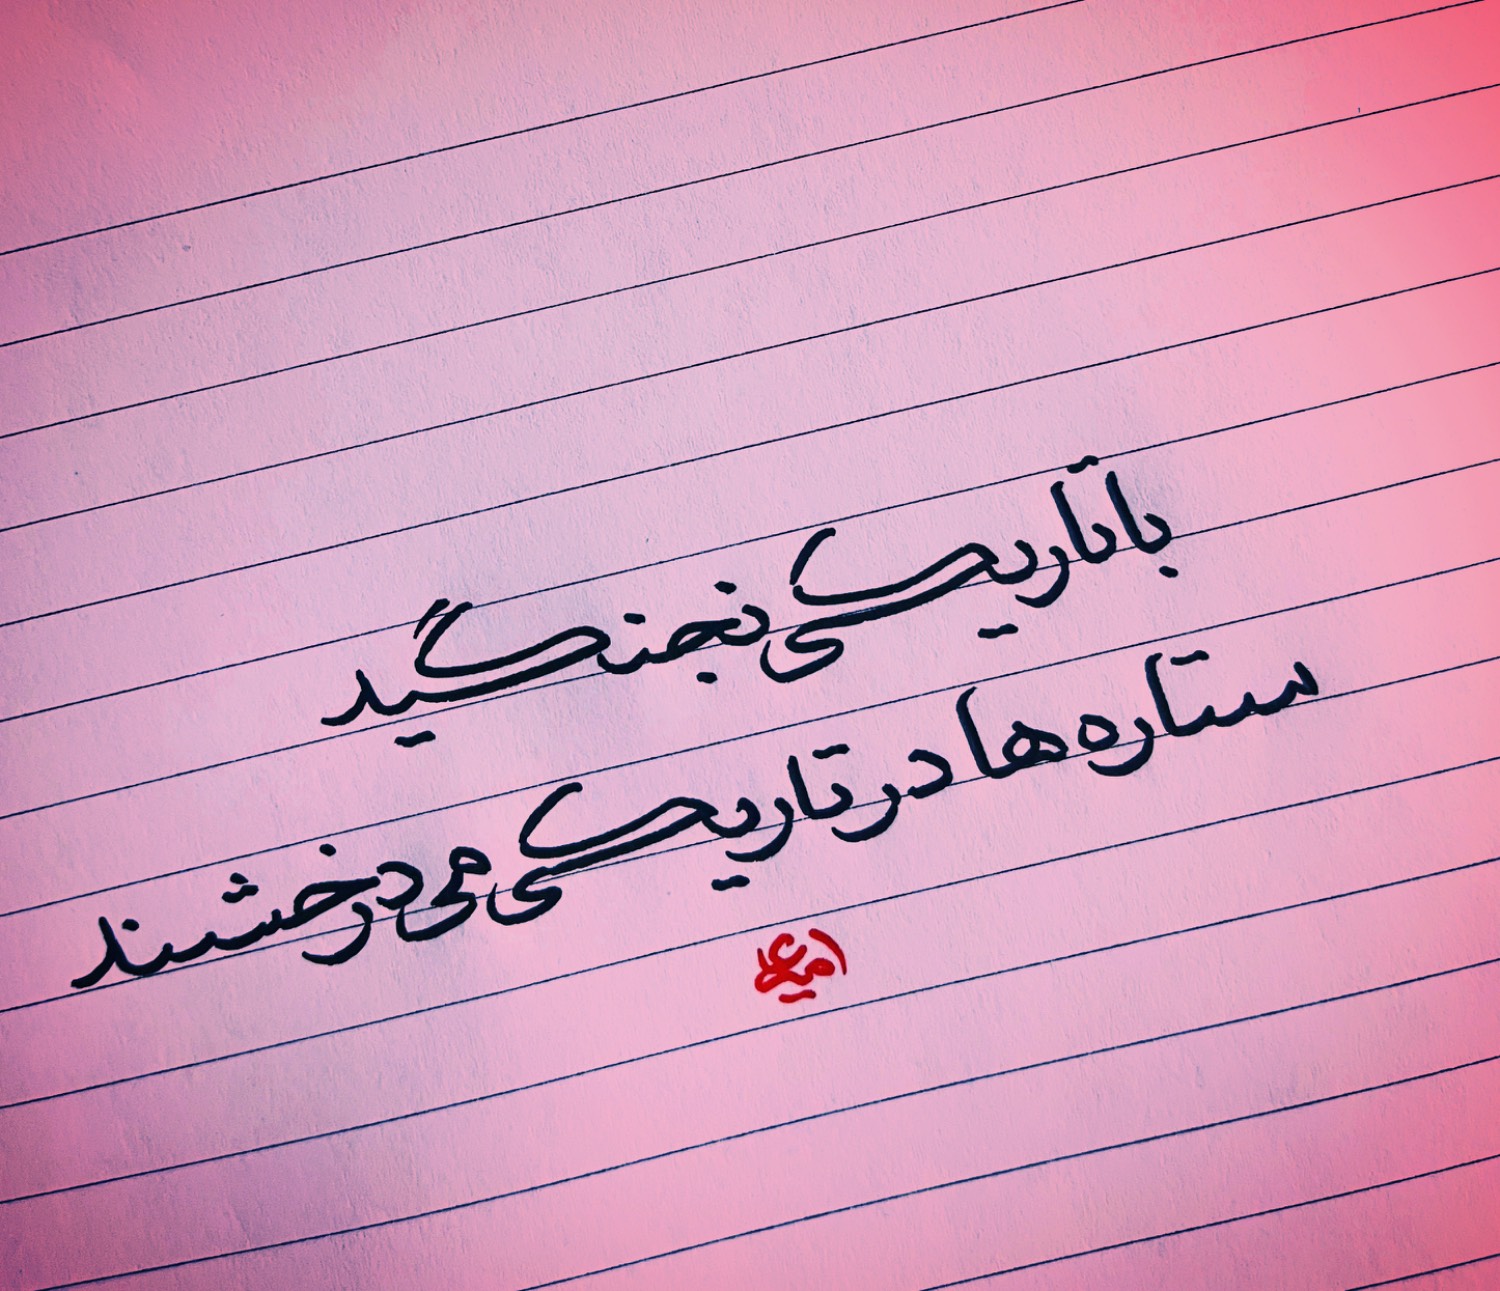 با تاریکی نجنگید
ستاره ها در تاریکی می درخشند